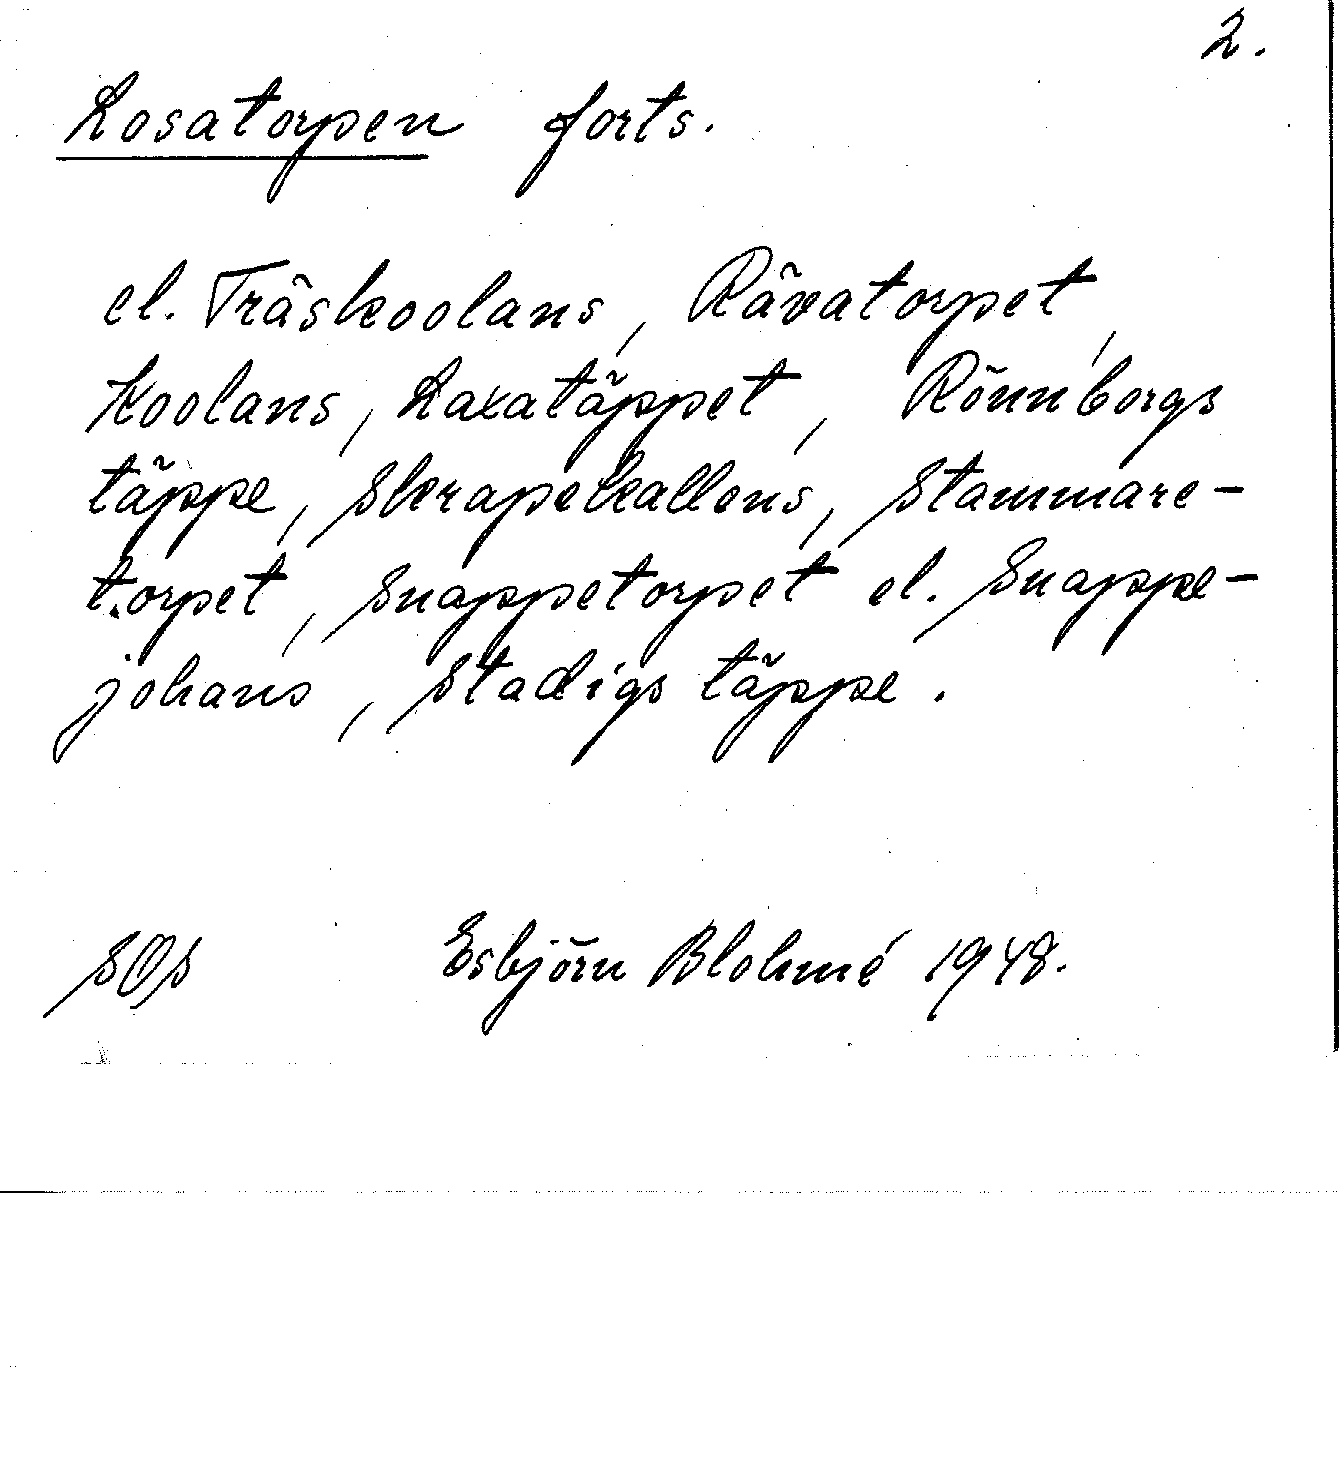 2.
Losatorpen forts.
el. Träskoolans, Rävatorpet,
Koolans, Laxatäppet, Rönnborgs
täppe, Skrapekallens, Stammare-
torpet, Snappetorpet el. Snappe-
johans, Stadigs täppe.
SOS Esbjörn Blohmé 1948.